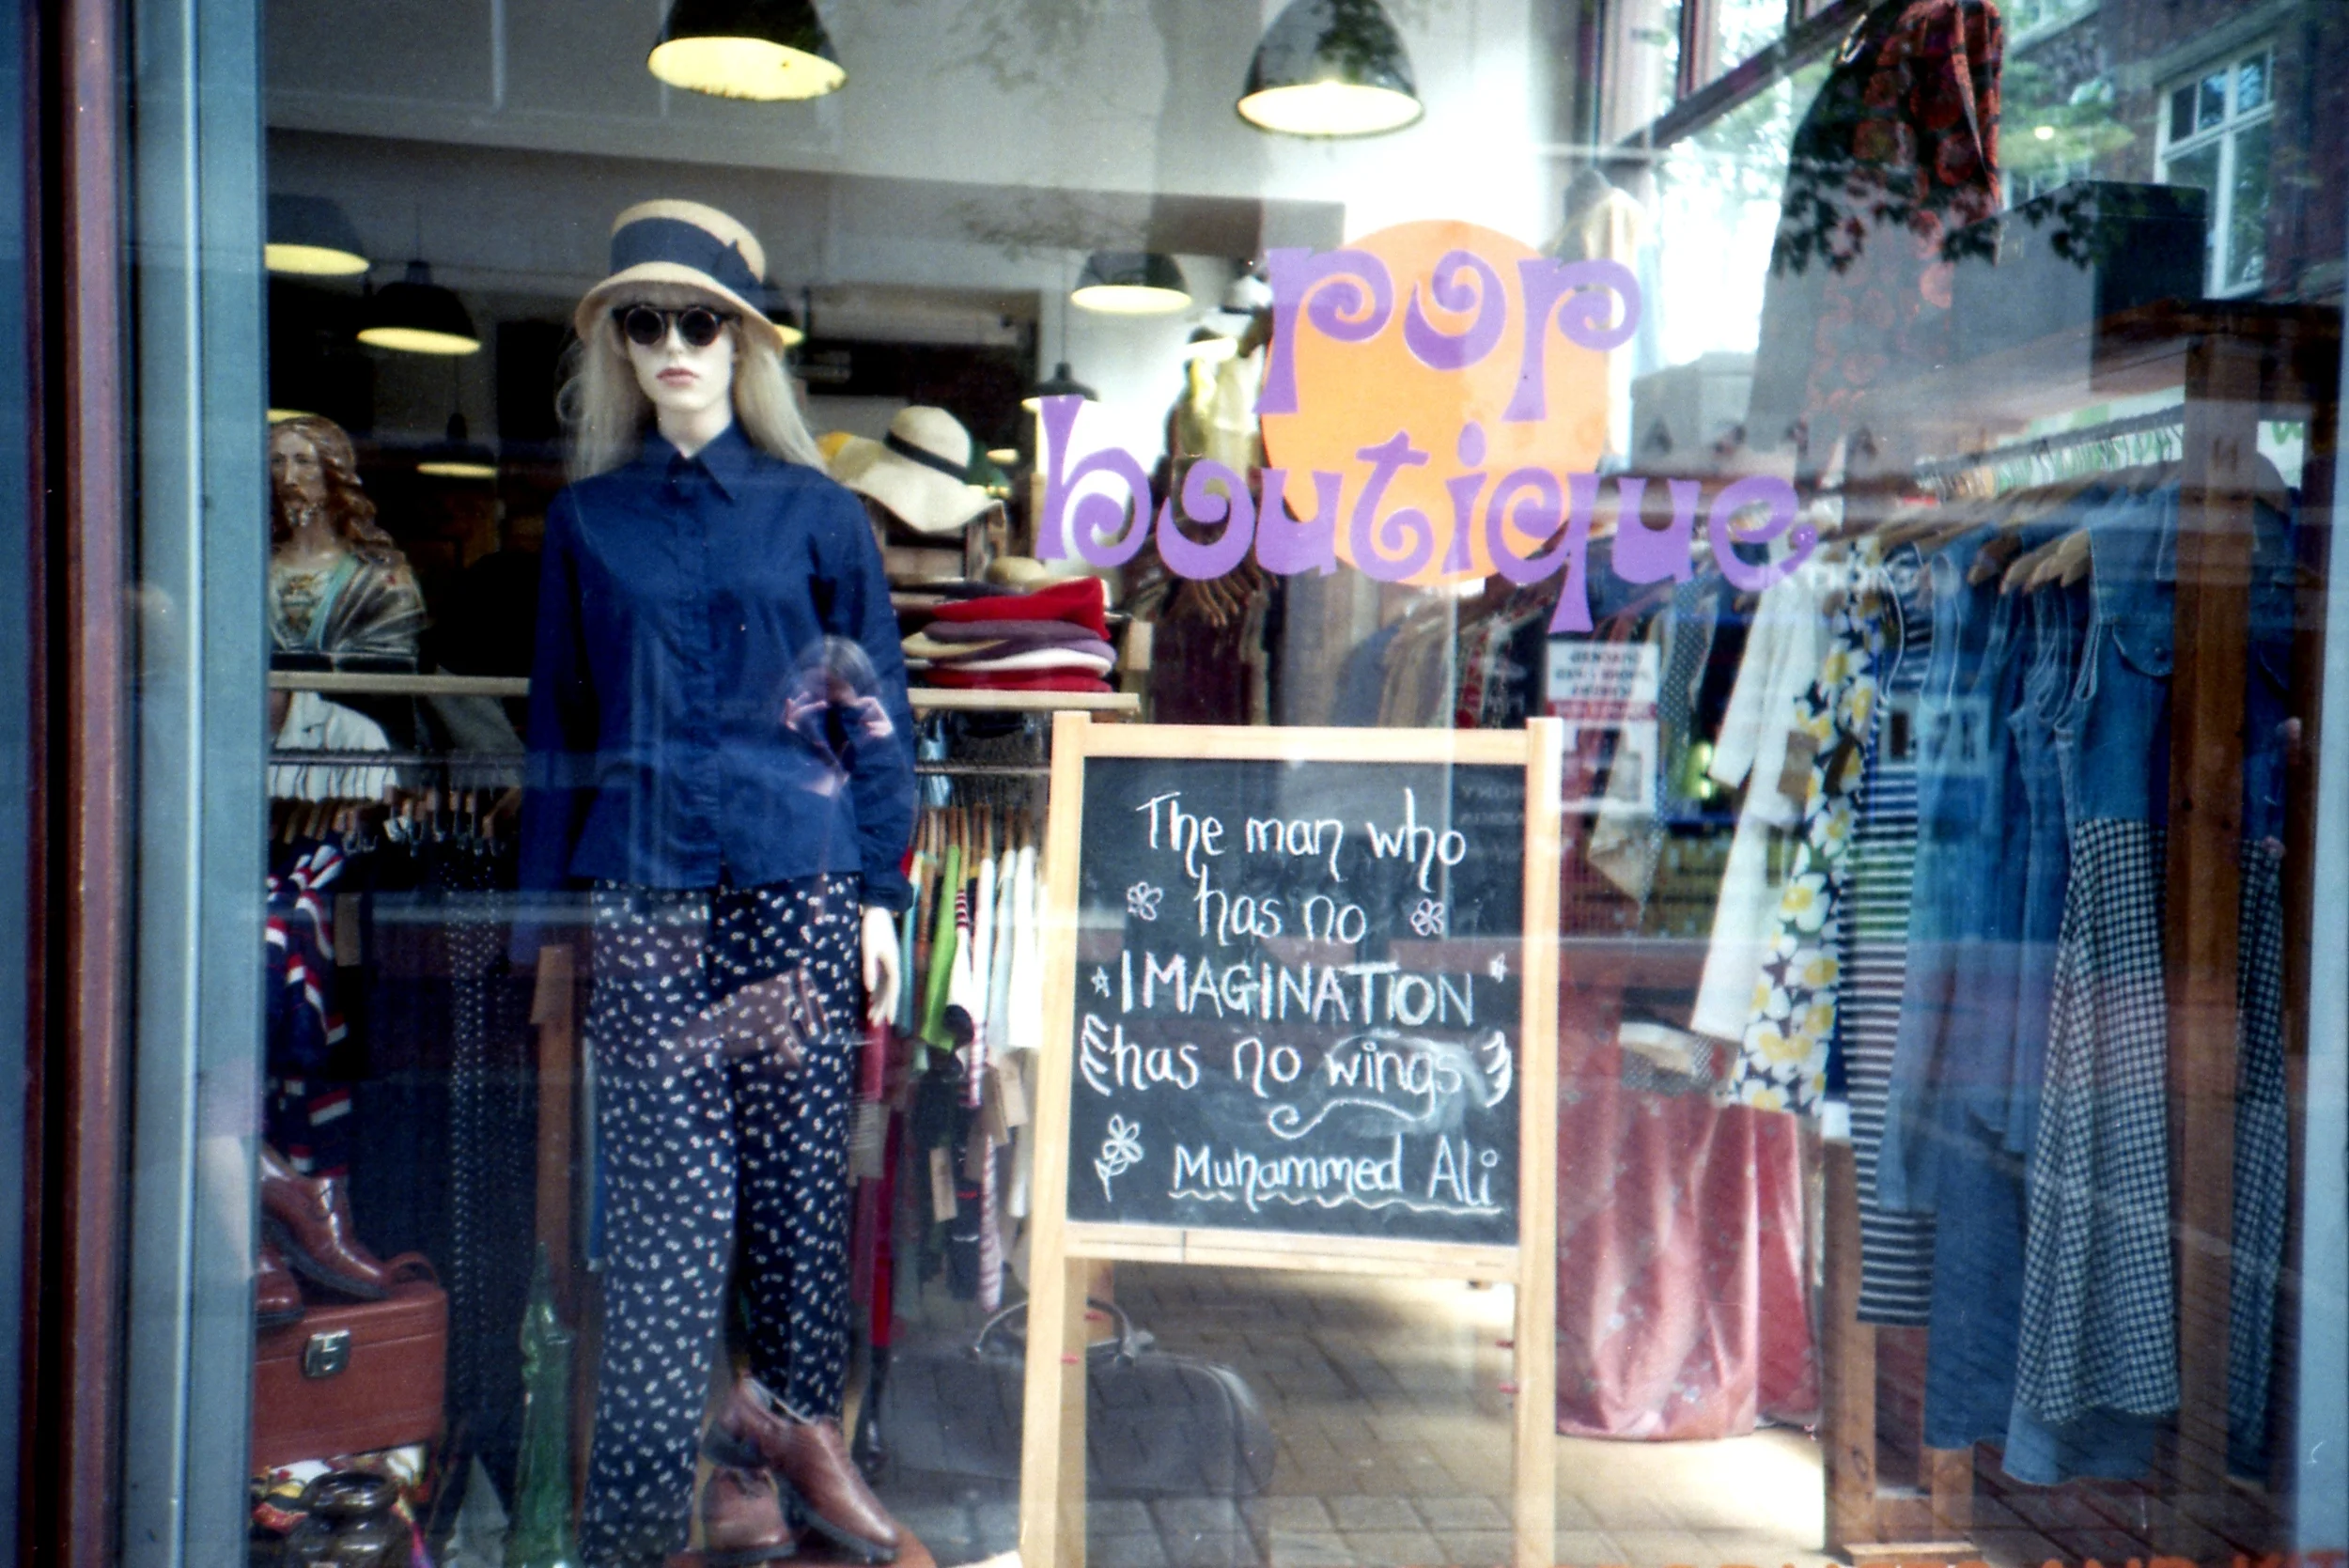 pop
boutique
The man who
has no
IMAGINATION
has no wings
Muhammed Ali